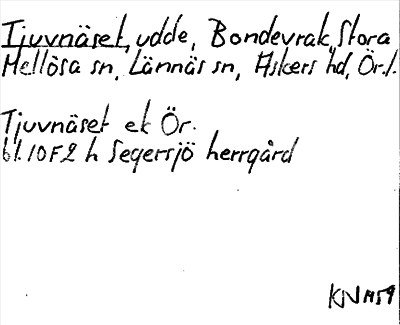 Tjuvnäset, udde, Bondevrak, Stora
Mellösa sn, Lännäs sn, Askers hd, Ör.l.
Tjuvnäset ek Ör.
bl. 10F2 h Segersjö herrgård
KN 1959